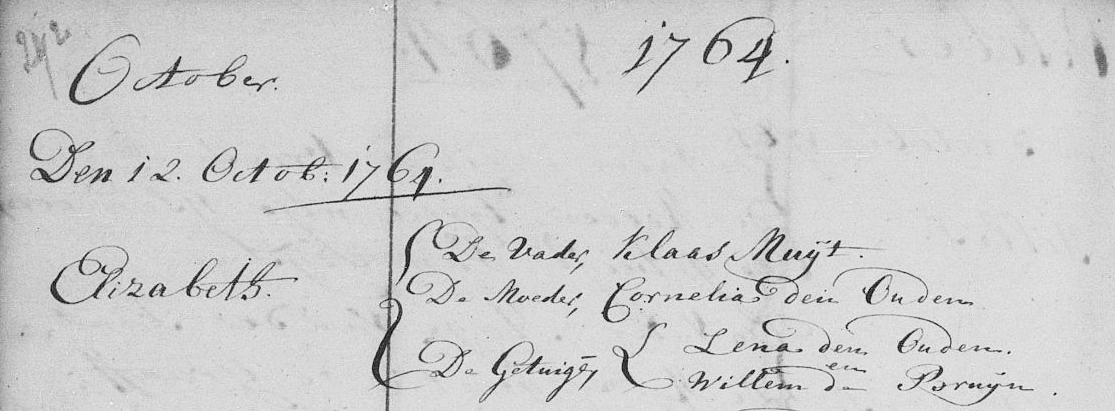 242
October. 1764.
Den 12. Octob: 1764.
Elizabeth.
De Vader, Klaas Muijt.
De Moeder, Cornelia den Ouden
De Getuigen, Lena den Ouden.
en
Willem de Bruijn.